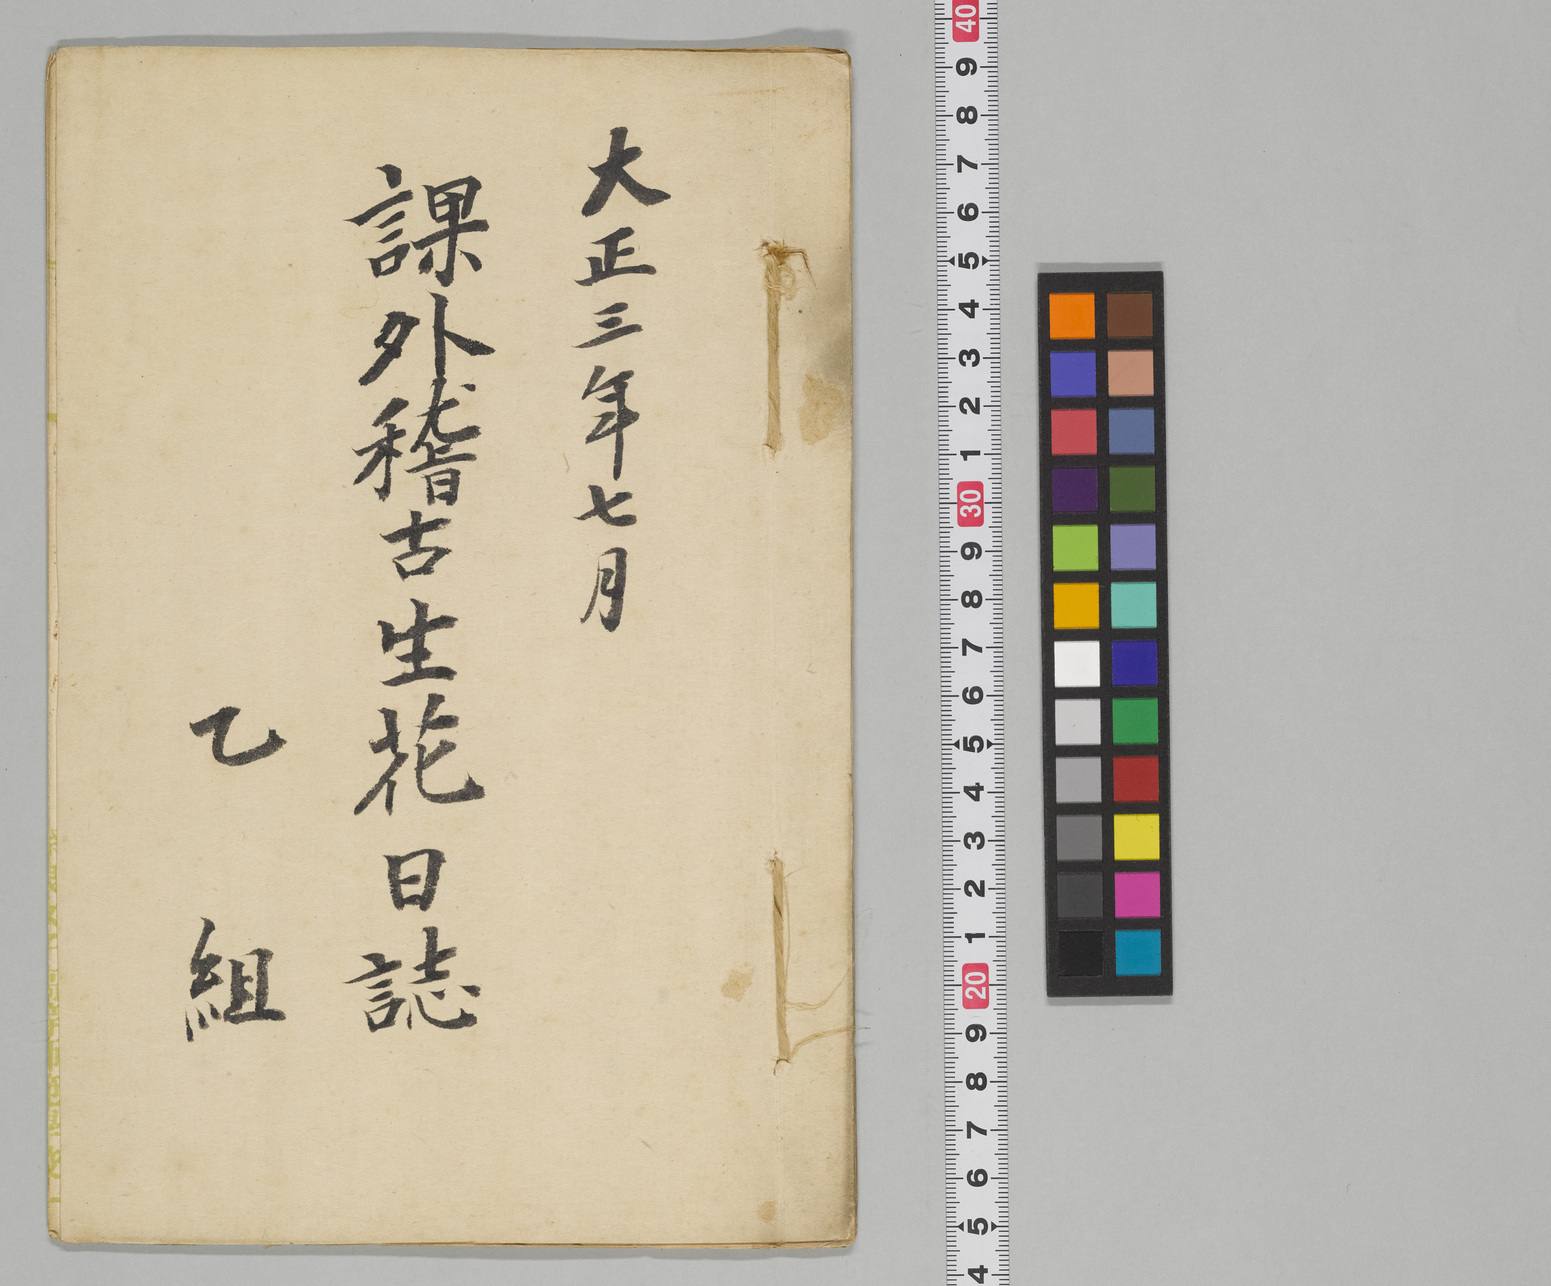 大正三年七月
課外稽古生花日誌
乙組
40
9
8
7
6
5
4
3
2
1
30
9
8
7
6
5
4
3
2
1
20
9
8
7
6
5
4